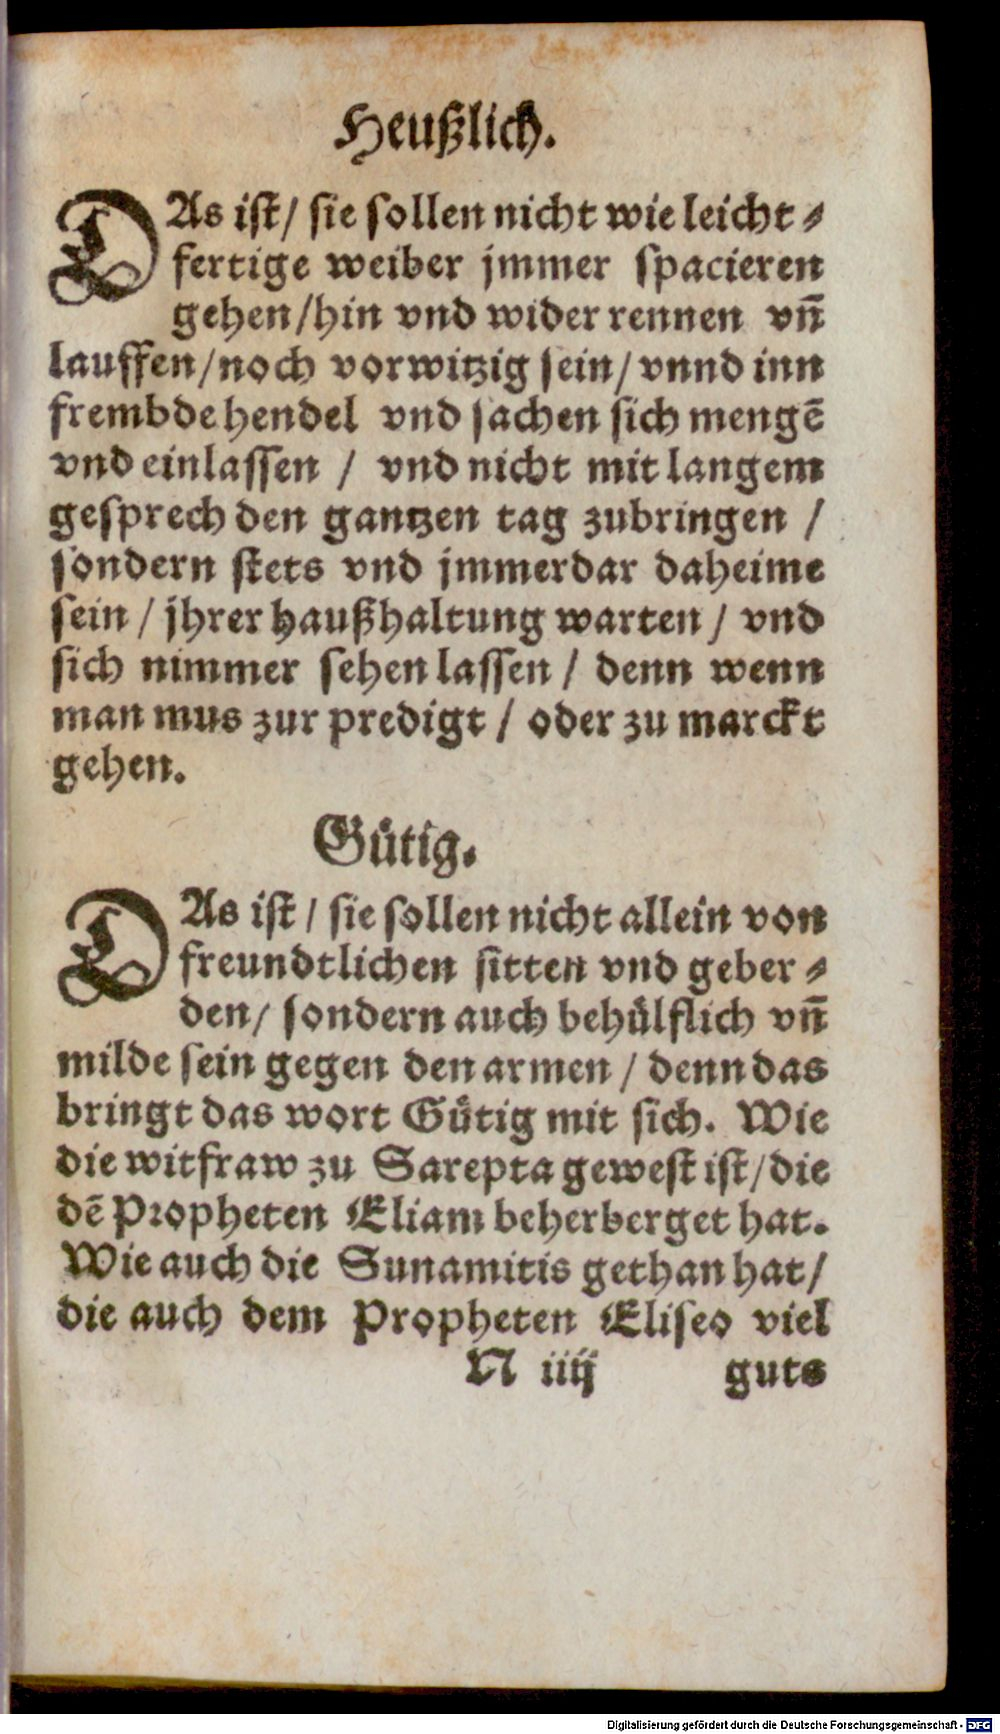 Heußlich.
DAs ist/ sie sollen nicht wie leicht⸗
fertige weiber jmmer spacieren
gehen/hin vnd wider rennen vn̄
lauffen/noch vorwitzig sein/ vnnd inn
frembde hendel vnd sachen sich mengē
vnd einlassen / vnd nicht mit langem
gesprech den gantzen tag zubringen /
sondern stets vnd jmmerdar daheime
sein / jhrer haußhaltung warten / vnd
sich nimmer sehen lassen / denn wenn
man mus zur predigt / oder zu marckt
gehen.
Gütig.
DAs ist / sie sollen nicht allein von
freundtlichen sitten vnd geber⸗
den/ sondern auch behülflich vn̄
milde sein gegen den armen / denn das
bringt das wort Gütig mit sich. Wie
die witfraw zu Sarepta gewest ist/die
dē Propheten Eliam beherberget hat.
Wie auch die Sunamitis gethan hat/
die auch dem Propheten Eliseo viel
N iiij guts
Digitalisierung gefördert durch die Deutsche Forschungsgemeinschaft - DFG